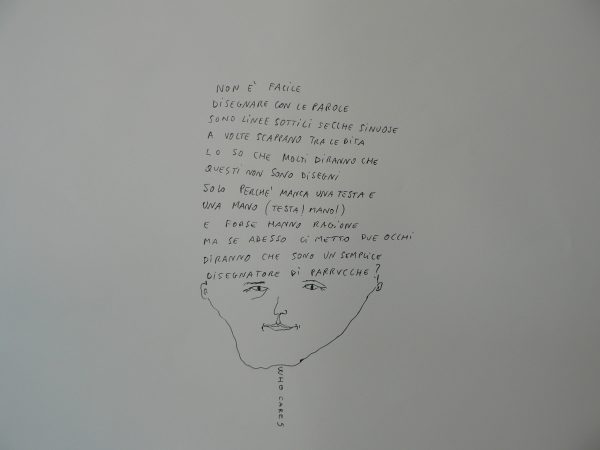 NON E' FACILE
DISEGNARE CON LE PAROLE
SONO LINEE SOTTILI SECCHE SINUOSE
A VOLTE SCAPPANO TRA LE DITA
LO SO CHE MOLTI DIRANNO CHE
QUESTI NON SONO DISEGNI
SOLO PERCHE' MANCA UNA TESTA E
UNA MANO (TESTA! MANO!)
E FORSE HANNO RAGIONE
MA SE ADESSO CI METTO DUE OCCHI
DIRANNO CHE SONO UN SEMPLICE
DISEGNATORE DI PARRUCCHE?
WHO CARES